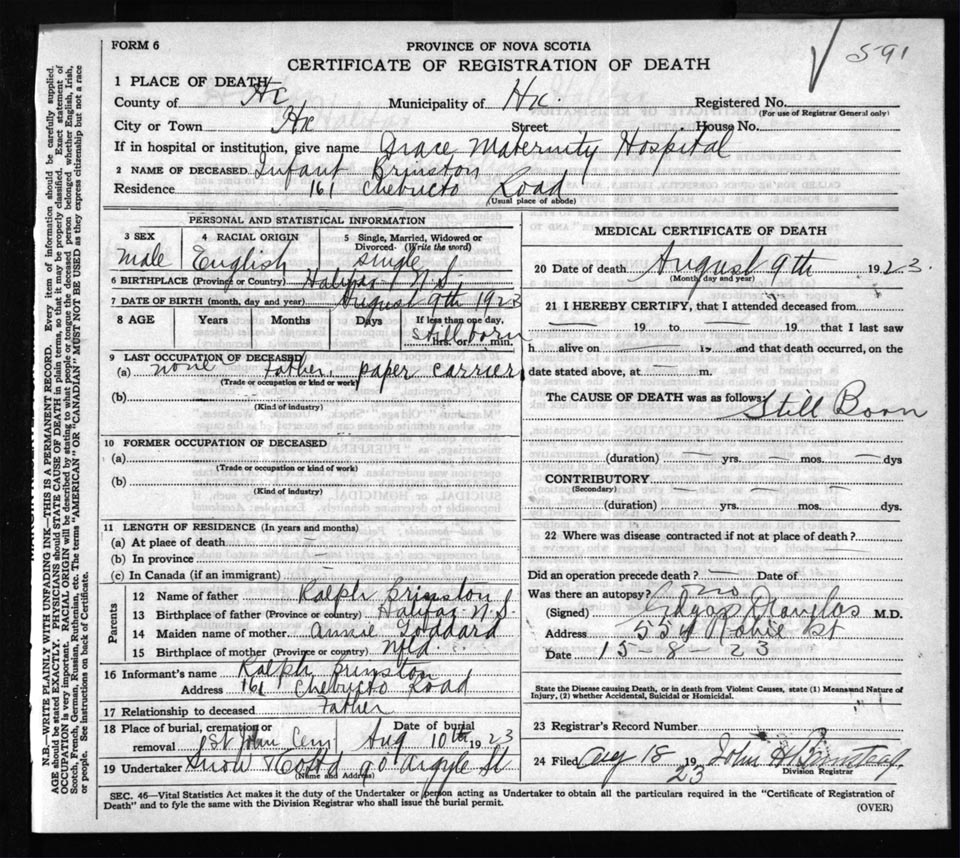 FORM 6
PROVINCE OF NOVA SCOTIA
CERTIFICATE OF REGISTRATION OF DEATH
591
1 PLACE OF DEATH
County of Hx Municipality of Hx. Registered No.
(For use of Registrar General only)
City or Town Hx Street House No.
If in hospital or institution, give name Grace Maternity Hospital
2 NAME OF DECEASED Infant Brinston
Residence 161 Chebucto Road
(Usual place of abode)
PERSONAL AND STATISTICAL INFORMATION
3 SEX 4 RACIAL ORIGIN 5 Single, Married, Widowed or Divorced. (Write the word)
Male English Single
6 BIRTHPLACE (Province or Country) Halifax N.S.
7 DATE OF BIRTH (month, day and year) August 9th 1923
8 AGE Years Months Days If less than one day,
Still born
hrs. or min.
9 LAST OCCUPATION OF DECEASED
(a) none father paper carrier
(Trade or occupation or kind or work)
(b)
(Kind of industry)
10 FORMER OCCUPATION OF DECEASED
(a)
(Trade or occupation or kind of work)
(b)
(Kind of industry)
11 LENGTH OF RESIDENCE (In years and months)
(a) At place of death
(b) In province
(c) In Canada (if an immigrant)
Parents
12 Name of father Ralph Brinston
13 Birthplace of father (Province or country) Halifax N.S.
14 Maiden name of mother Annie Goddard
15 Birthplace of mother (Province or country) Nfld.
16 Informant's name Ralph Brinston
Address 161 Chebucto Road
17 Relationship to deceased Father
18 Place of burial, cremation or removal St John Cem Date of burial Aug 10th 1923
19 Undertaker Snow & Co Ltd 90 Argyle St
(Name and Address)
MEDICAL CERTIFICATE OF DEATH
20 Date of death August 9th 1923.
(Month, day and year)
21 I HEREBY CERTIFY, that I attended deceased from
— 19 to — 19 — that I last saw
h alive on — 19 and that death occurred, on the
date stated above, at — m.
The CAUSE OF DEATH was as follows:
Still Born
(duration) — yrs. — mos. — dys
CONTRIBUTORY
(Secondary)
(duration) yrs. mos. dys.
22 Where was disease contracted if not at place of death?
Did an operation precede death? — Date of
Was there an autopsy? no
(Signed) Edgar Douglas M.D.
Address 554 Robie St
Date 15-8-23
State the Disease causing Death, or in death from Violent Causes, state (1) Means and Nature of
Injury, (2) whether Accidental, Suicidal or Homicidal.
23 Registrar's Record Number
24 Filed Aug 18 1923 John H
Division Registrar
SEC. 46—Vital Statistics Act makes it the duty of the Undertaker or person acting as Undertaker to obtain all the particulars required in the "Certificate of Registration of
Death" and to fyle the same with the Division Registrar who shall issue the burial permit.
(OVER)
N.B.—WRITE PLAINLY WITH UNFADING INK—THIS IS A PERMANENT RECORD. Every item of information should be carefully supplied.
AGE should be stated EXACTLY. PHYSICIANS should STATE CAUSE OF DEATH in plain terms, so that it may be properly classified. Exact statement of
OCCUPATION is very important. RACIAL ORIGIN will be described by stating to what people or tongue the deceased person belonged whether English, Irish,
Scotch, French, German, Russian, Ruthenian, etc. The terms "AMERICAN" OR "CANADIAN" MUST NOT BE USED as they express citizenship but not a race
or people. See instructions on back of Certificate.